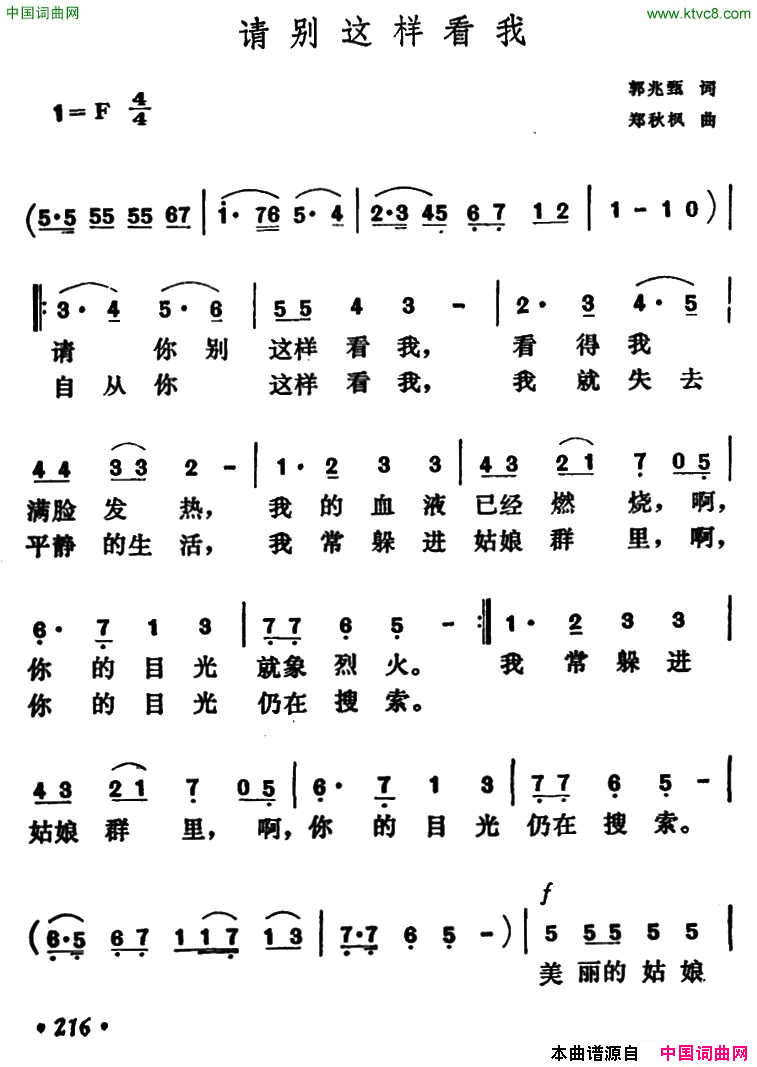 中国词曲网 www.ktvc8.com
请别这样看我
郭兆甄 词
1=F 4/4
郑秋枫 曲
(5·5 55 55 67 | i· 76 5· 4 | 2·3 45 6 7 1 2 | 1 - 1 0 ) |
|: 3· 4 5· 6 | 5 5 4 3 - | 2· 3 4· 5 |
请 你 别 这样 看 我， 看 得 我
自 从 你 这样 看 我， 我 就 失 去
4 4 3 3 2 - | 1· 2 3 3 | 4 3 2 1 7 0 5 |
满脸 发 热， 我 的 血 液 已经 燃 烧，啊，
平静 的生 活， 我 常 躲 进 姑娘 群 里，啊，
6· 7 1 3 | 7 7 6 5 - :| 1· 2 3 3 |
你 的 目 光 就象 烈 火。 我 常 躲 进
你 的 目 光 仍在 搜 索。
4 3 2 1 7 0 5 | 6· 7 1 3 | 7 7 6 5 - |
姑娘 群 里， 啊，你 的 目 光 仍在 搜 索。
f
( 6·5 6 7 1 1 7 1 3 | 7·7 6 5 - ) | 5 5 5 5 5 |
美 丽的 姑 娘
·216·
本曲谱源自 中国词曲网